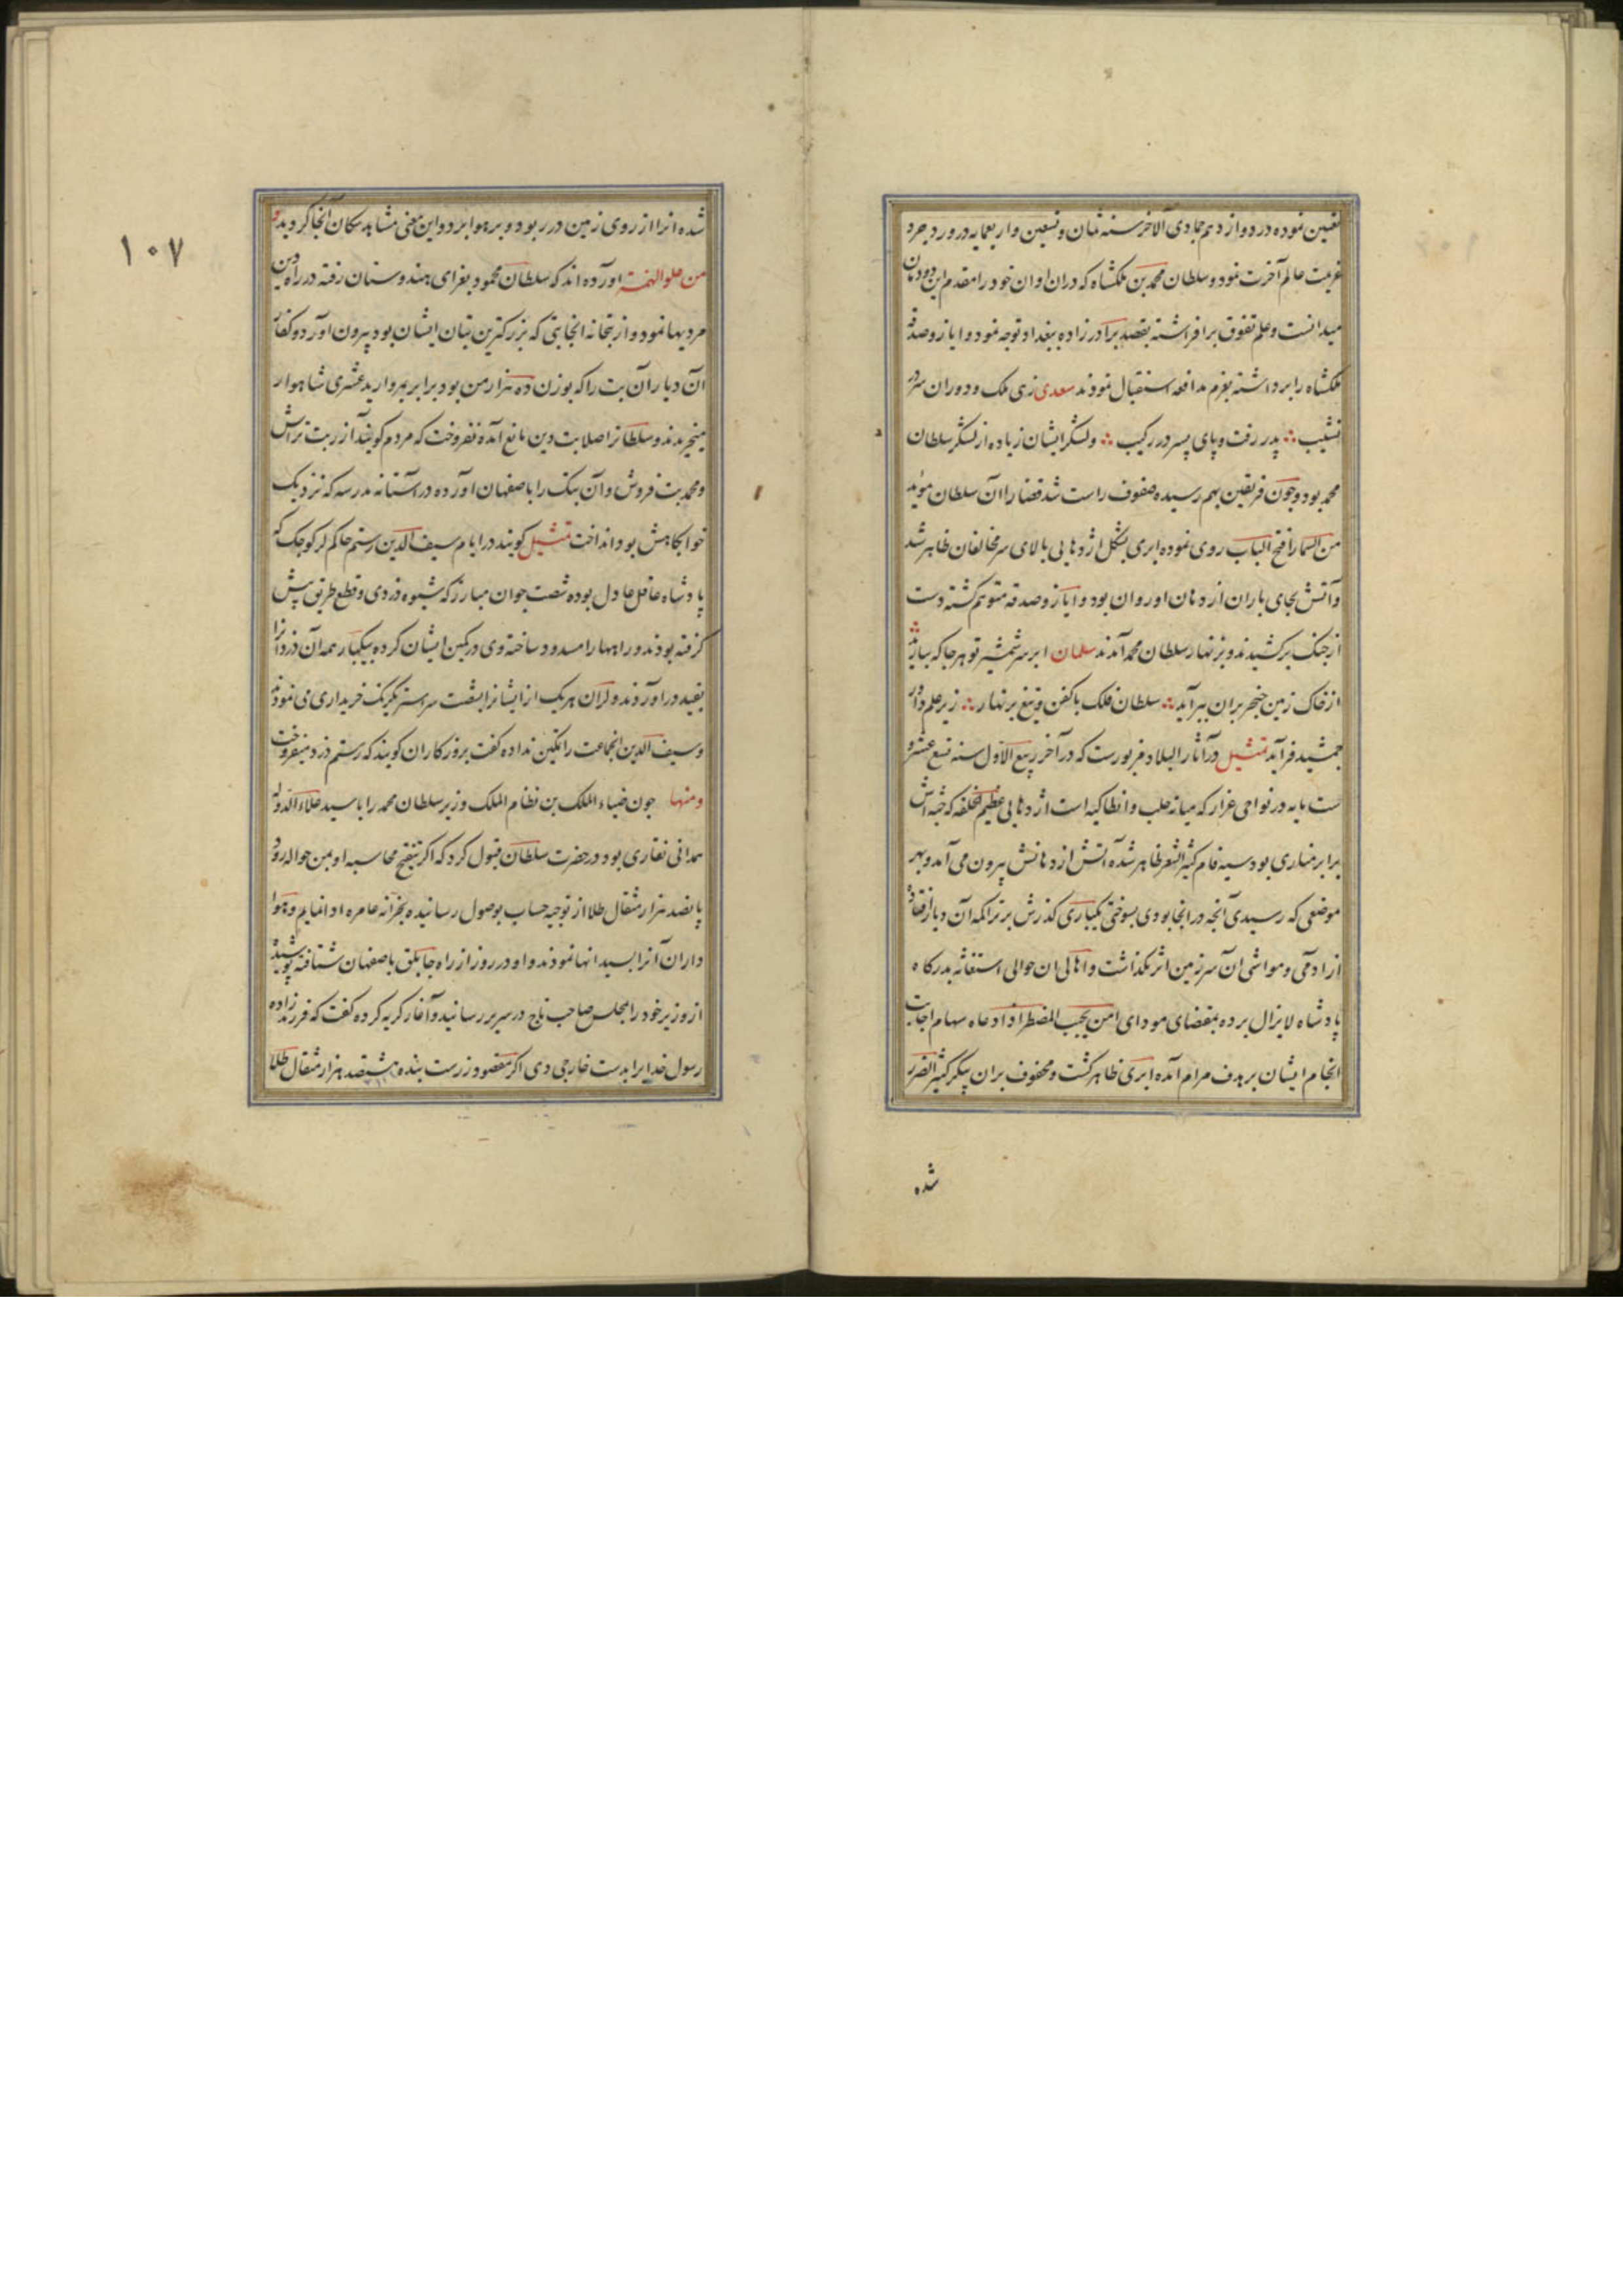 تعیین نموده در دوازدهم جمادی الآخر سنه ثمان و تسعین و اربعمایه در وردجرد
عزیمت عالم آخرت نمود و سلطان محمد بن ملکشاه که دران اوان خود را مقدم این دودمان
میدانست و علم تفوق برافراشته بقصد برادرزاده ببغداد توجه نمود و ایاز و صدقه
ملکشاه را برداشته بعزم مدافعه استقبال نمودند سعدی زهی ملک و دوران سر در
نشیب ∴ پدر رفت و پای پسر در رکیب ∴ و لشکر ایشان زیاده از لشکر سلطان
محمد بود و چون فریقین بهم رسیده صفوف راست شد قضا را آن سلطان موید
من السما را فتح الباب روی نموده ابری بشکل اژدهایی بالای سر مخالفان ظاهر شد
و آتش بجای باران از دهان او روان بود و ایاز و صدقه متوهم کشته دست
از جنک برکشیدند و بزنهار سلطان محمد آمدند سلمان ابر سر شمشیر تو هرجا که ببارید
از خاک زمین خنجر بران ببرآید ∴ سلطان فلک با کفن و تیغ بزنهار ∴ زیر علم داور
جمشید فرآید تمثیل در آثار البلاد مزبورست که در آخر ربیع الاول سنه تسع عشر و
ست مایه در نواحی عزار که میانه حلب و انطاکیه است اژدهایی عظیم الخلقه که جثه اش
برابر مناری بود سیه فام کثیر الشعر ظاهر شده آتش از دهانش بیرون می آمد و بهر
موضعی که رسیدی آنچه در انجا بودی بسوختی یکباری کذرش بر تراکمه آن دیار افتاد
از ادمی و مواشی آن سرزمین اثر نکذاشت و اهالی ان حوالی استغاثه بدرکاه
پادشاه لایزال برده بمقتضای مودای امن یجیب المضطر اذا دعاه سهام اجابت
انجام ایشان بر هدف مرام آمده ابری ظاهر کشت و محفوف بران پیکر کثیر الضرر
شده
۱۰۷
شده انرا از روی زمین در ربود و بر هوا برد و این معنی مشاهد سکان آنجا کردید و
من علو الهمة اورده اند که سلطان محمود بغزای هندوستان رفته در راه دین
مردیها نمود و از بتخانه انجا بتی که بزرکترین بتان ایشان بود بیرون اورد و کفار
آن دیار آن بت را که بوزن ده هزار من بود برابر بمروارید عشری شاهوار
میخریدند و سلطانرا صلابت دین مانع آمده نفروخت که مردم کویند آزر بت تراش
و محمد بت فروش و آن سنک را باصفهان اورده در آستانه مدرسه که نزدیک
خوابکاهش بود انداخت تمثیل کویند در ایام سیف الدین رستم حاکم لر کوچک که
پادشاه عاقل عادل بوده شصت جوان مبارز که شیوه دزدی و قطع طریق پیش
کرفته بودند و راهها را مسدود ساخته وی در کمین ایشان کرده بیکبار همه آن دزدانرا
بقید دراورند و لران هریک از ایشانرا بشصت سر استر یکرنک خریداری می نمودند
و سیف الدین انجماعت را تمکین نداده کفت بروزکاران کویند که رستم دزد میفروخت
ومنها چون ضیاء الملک بن نظام الملک وزیر سلطان محمد را با سید علاء الدوله
همدانی نقاری بود در حضرت سلطان قبول کرد که اکر تنقیح محاسبه او بمن حواله رود
پانصد هزار مثقال طلا از توجیه حساب بوصول رسانیده بخزانه عامره ادا نمایم و هوا
داران آنرا بسید انها نمودند و او در روز از راه جابلق باصفهان شتافته پوشیده
از وزیر خود را بمجلس صاحب تاج و سریر رسانید و آغاز کریه کرده کفت که فرزندزاده
رسول خدا را بدست خارجی دی اکر مقصود زرست بنده هشتصد هزار مثقال طلا